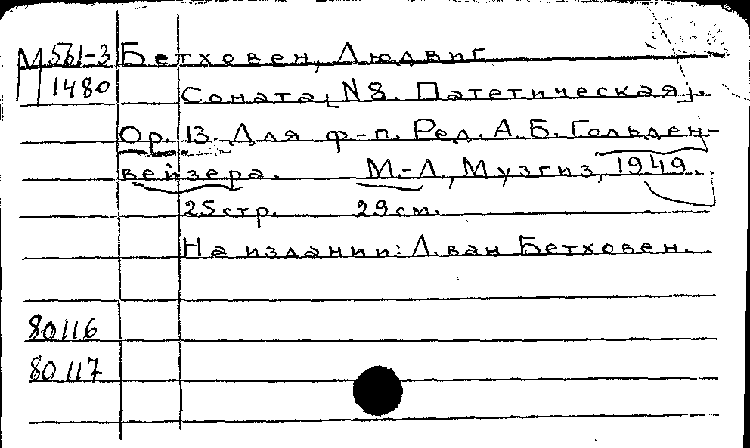 М 561-3 Бетховен, Людвиг
1480 Соната, N 8. Патетическая,.
Op. 13. Для ф-п. Ред. А.Б. Гольден-
вейзера. М.-Л, Музгиз, 1949.
25 стр. 29 см.
На издании: Л. ван Бетховен.
80116
80117